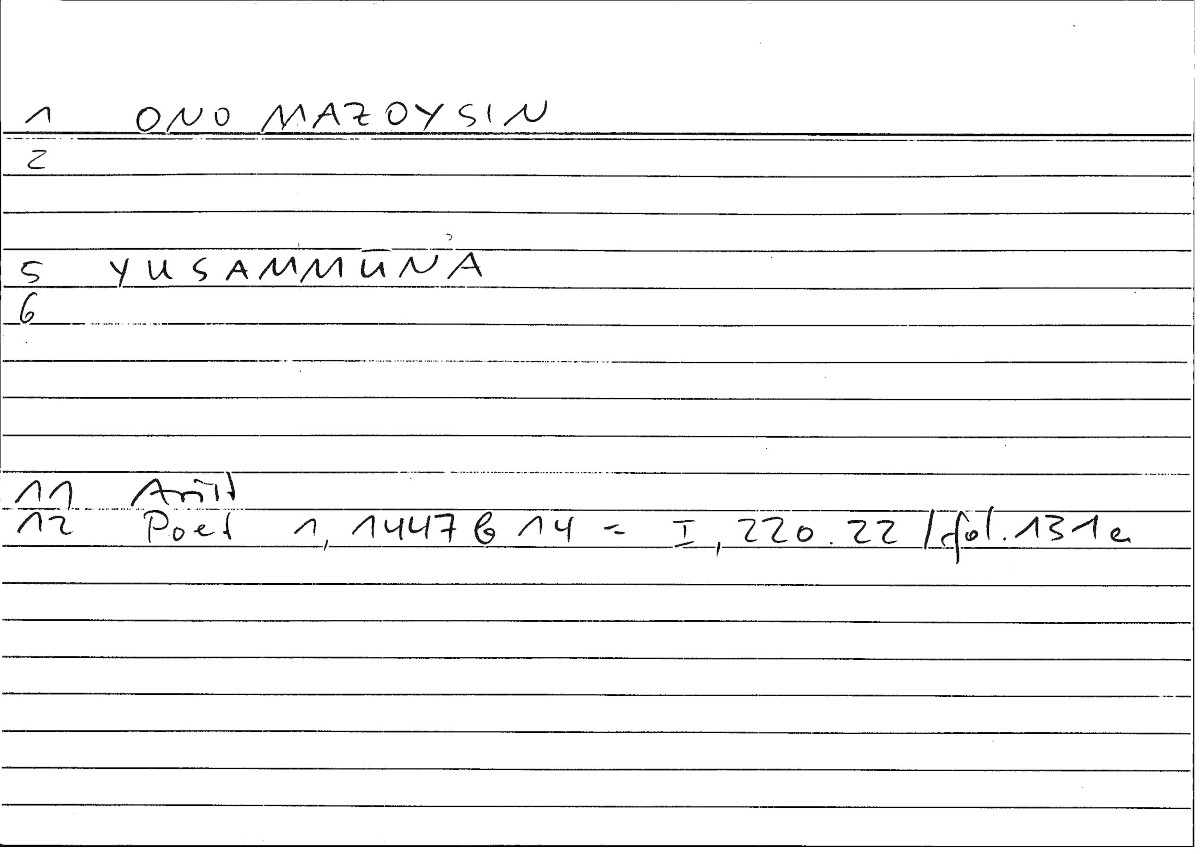 1 ONOMAZOYSIN
2
5 YUSAMMŪNʾA
6
11 Arist
12 Poet 1, 1447 b 14 = I, 220.22 / fol. 131a